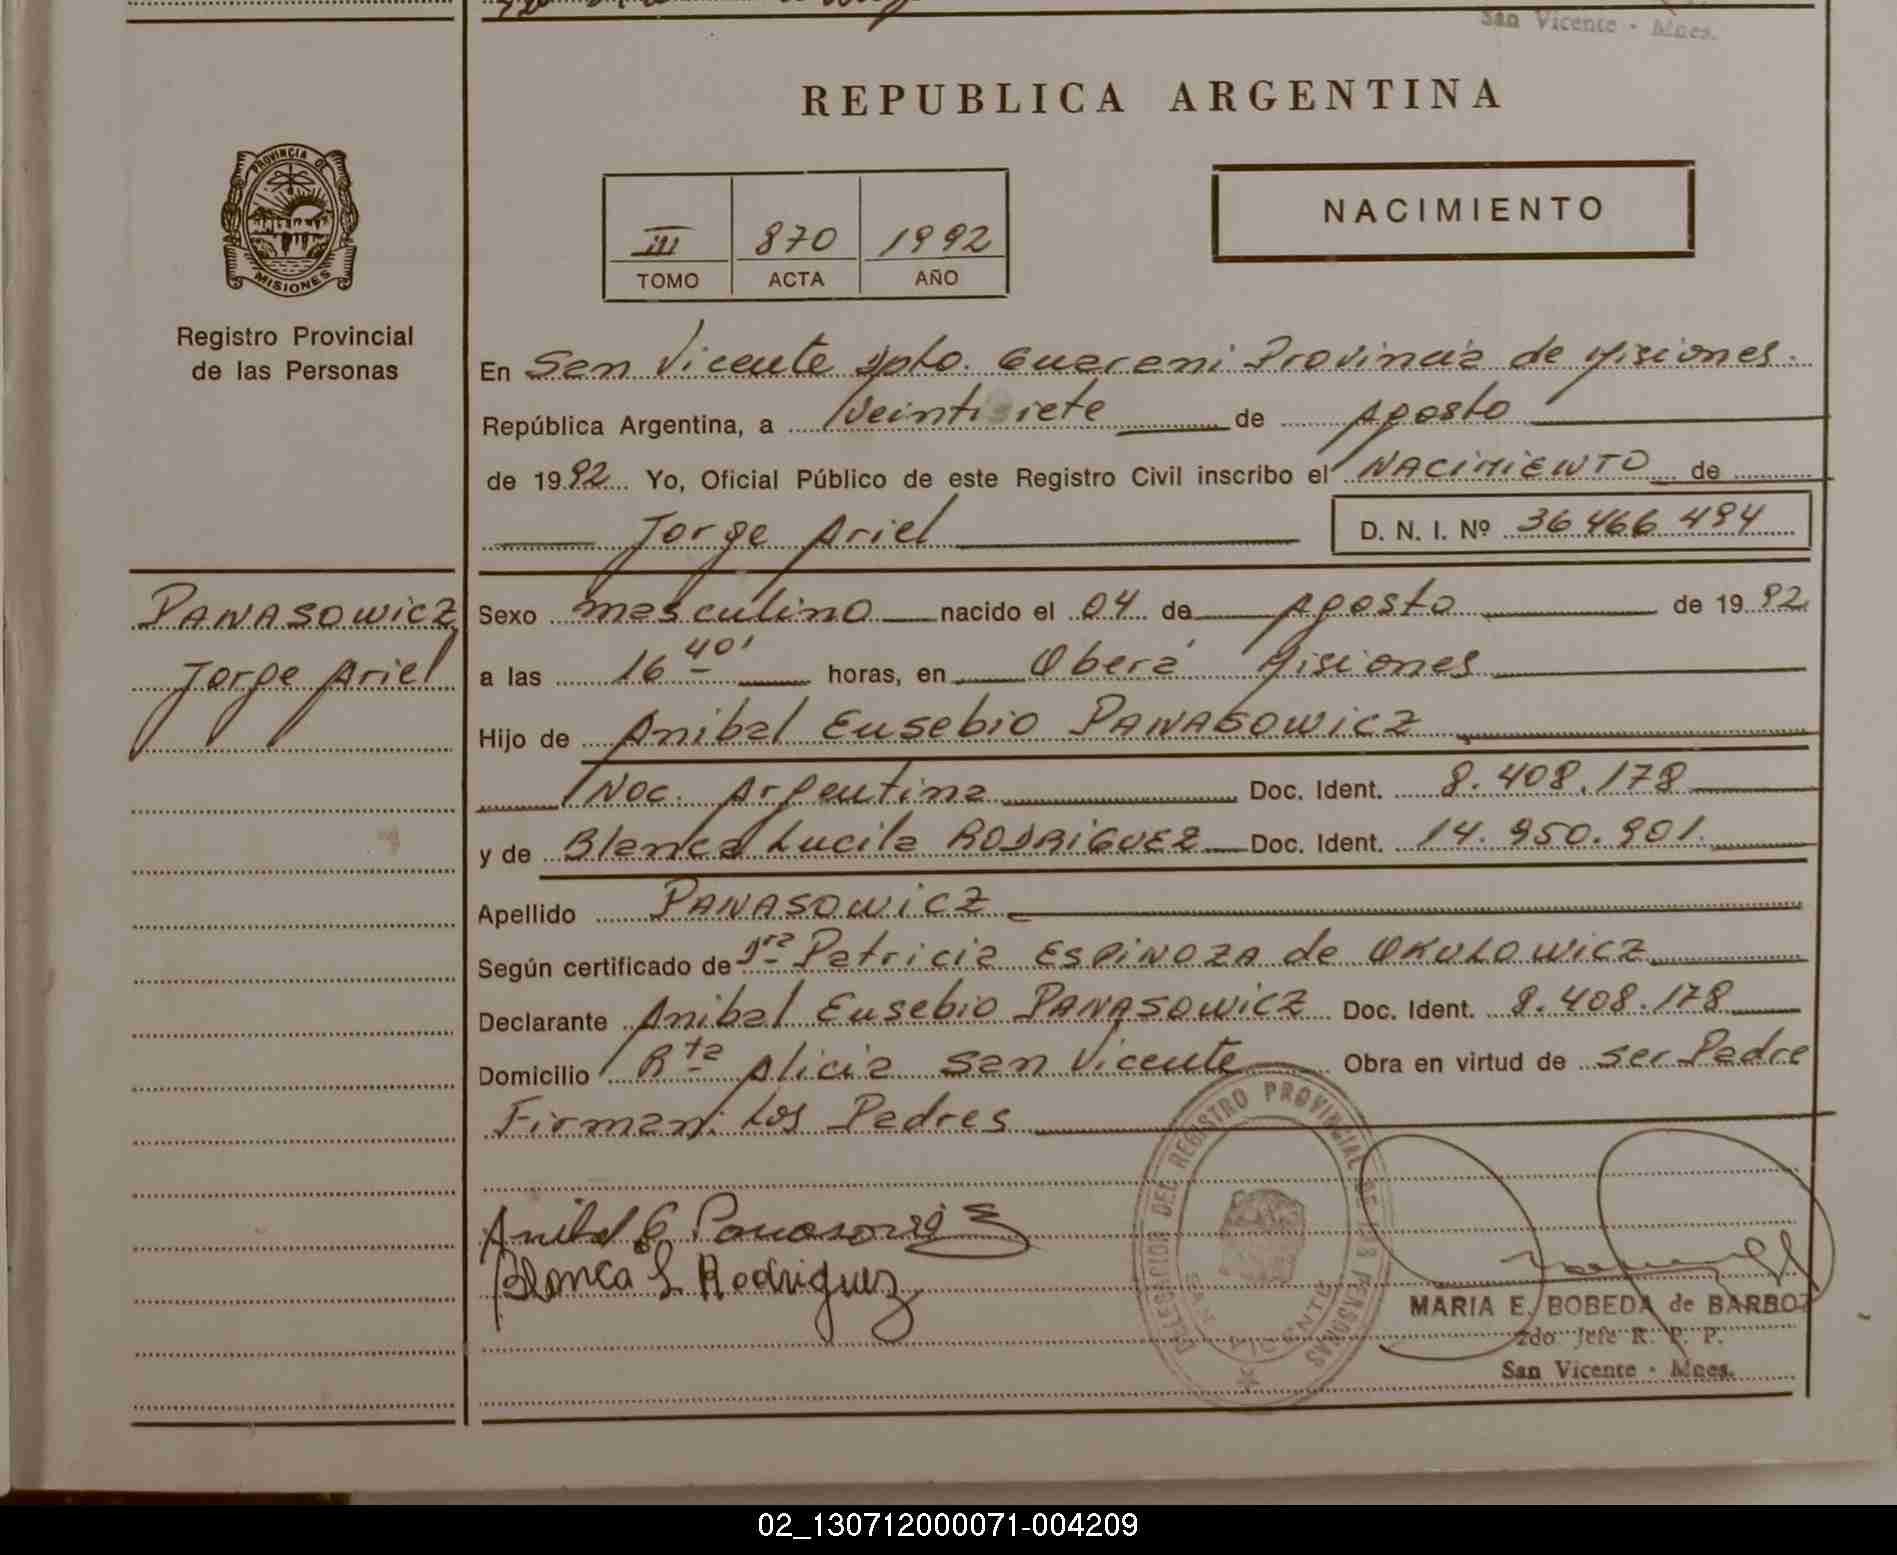 San Vicente - Mnes.
REPUBLICA ARGENTINA
PROVINCIA DE
MISIONES
Registro Provincial
de las Personas
III 870 1992
TOMO ACTA AÑO
NACIMIENTO
En San Vicente Dpto. Guarani Provincia de Misiones.
República Argentina, a Veintisiete de Agosto
de 1992 Yo, Oficial Público de este Registro Civil inscribo el NACIMIENTO de
Jorge Ariel D. N. I. Nº 36 466 494
PANASOWICZ
Jorge Ariel
Sexo masculino nacido el 04 de Agosto de 1992
a las 16 40' horas, en Oberá Misiones
Hijo de Anibal Eusebio PANASOWICZ
Nac. Argentina Doc. Ident. 8.408.178
y de Blanca Lucila RODRIGUEZ Doc. Ident. 14.950.901.
Apellido PANASOWICZ
Según certificado de Dra Patricia ESPINOZA de OKULOWICZ
Declarante Anibal Eusebio PANASOWICZ Doc. Ident. 8.408.178
Domicilio Rta Alicia San Vicente Obra en virtud de ser Padre
Firman: Los Padres
Anibal E Panasowicz
Blanca L Rodriguez
DELEGACION DEL REGISTRO PROVINCIAL DE LAS PERSONAS
SAN VICENTE
MARIA E. BOBEDA de BARBOZ
2do Jefe R. P. P.
San Vicente - Mnes.
02_130712000071-004209